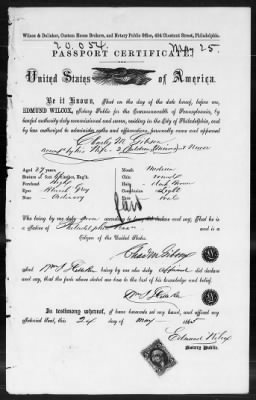 Wilcox & Dallaker, Custom House Brokers, and Notary Public Office, 404 Chestnut Street, Philadelphia.
20.054
May 25
PASSPORT CERTIFICATE
United States of America.
Be it Known, That on the day of the date hereof, before me,
EDMUND WILCOX, Notary Public for the Commonwealth of Pennsylvania, by
lawful authority duly commissioned and sworn, residing in the City of Philadelphia, and
by law authorized to administer oaths and affirmations, personally came and appeared
Charles M. Gibson
Wife 2 Children Nurse
Aged 27 years
Stature 5 feet inches, Eng'h
Forehead High
Eyes Gray
Nose Ordinary
Mouth Medium
Chin round
Hair Dark Brown
Complexion Light
Face Oval
who being by me duly
Native of Philadelphia
Citizen of the United States.
Chas M. Gibson
and Wm being by me also duly did
declare and say, that the facts above stated are true to the best of his knowledge and belief.
Wm
In testimony whereof, I have hereunto set my hand, and affixed my
Notarial Seal, this 24 day of May 1865
Edmund Wilcox
Notary Public.